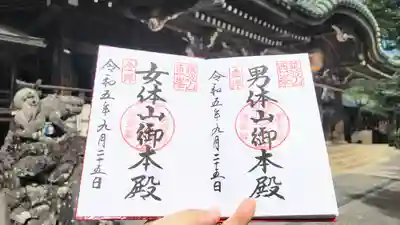 男体山御本殿
令和五年九月二十五日
女体山御本殿
令和五年九月二十五日